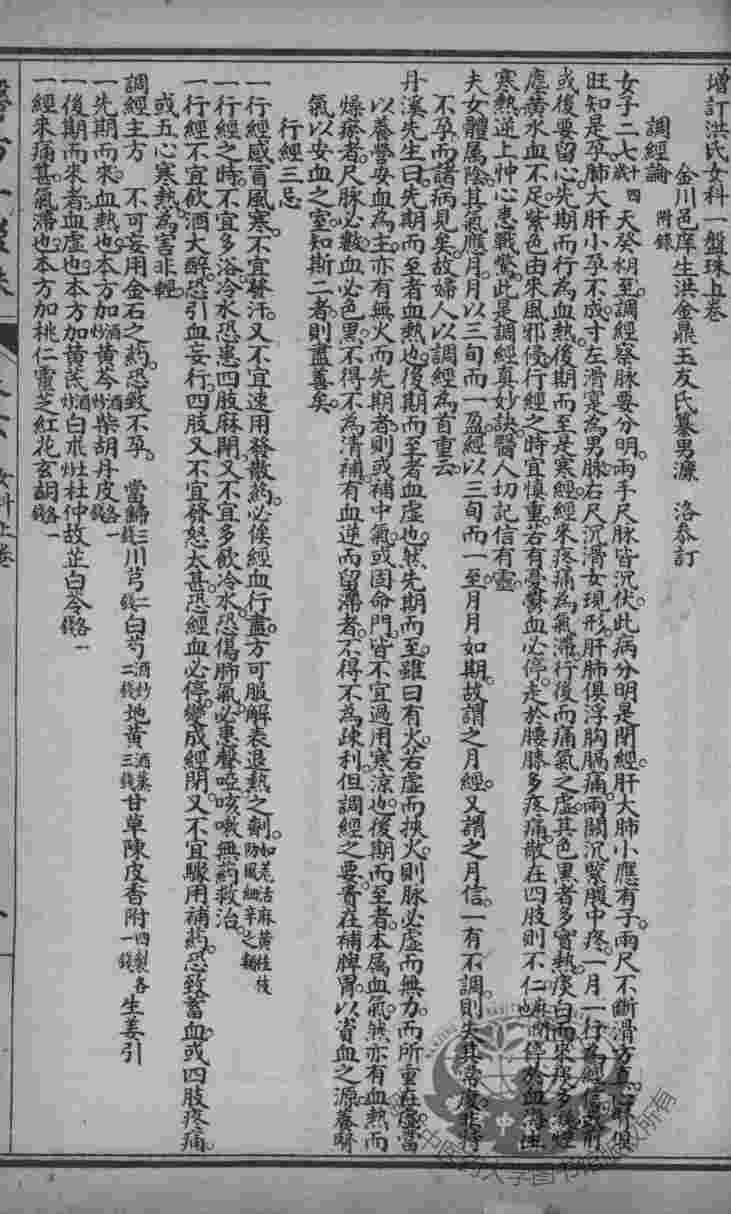 增訂洪氏女科一盤珠上卷
金川邑庠生洪金鼎玉友氏纂男濂　洛泰訂
調經論　附錄
女子二七十四歲天癸水至調經察脉要分明兩手尺脉皆沉伏此病分明是閉經肝大肺小應有子兩尺不斷滑方真心脾俱
旺知是孕肺大肝小孕不成寸左滑寔為男脉右尺沉滑女現形肝肺俱浮胸膈痛兩關沉緊腹中疼一月一行為經信或前
或後要留心先期而行為血熱後期而至是寒經經來疼痛為氣滯行後而痛氣之虛其色黑者多實熱痰白而來
應黃水血不足紫色由來風邪侵行經之時宜慎重若有憂鬱血必停走於腰膝多疼痛散在四肢則不仁麻痹停於血海
寒熱逆上忡心患戰驚此是調經真妙訣醫人切記信有靈
夫女體属陰其氣應月月以三旬而一盈經以三旬而一至月月如期故謂之月經又謂之月信一有不調則失其常度非特
不孕而諸病見矣故婦人以調經為首重云
丹溪先生曰先期而至者血熱也後期而至者血虛也然先期而至雖曰有火若虛而挾火則脉必虛而無力而所重在虛當
以養營安血為主亦有無火而先期者則或補中氣或固命門皆不宜過用寒涼也後期而至者本属血氣然亦有血熱而
燥瘀者尺脉必數血必色黑不得不為清補有血逆而留滯者不得不為疎利但調經之要貴在補脾胃以資血之源養腎
氣以安血之室知斯二者則盡善矣
行經三忌
一行經感冒風寒不宜發汗又不宜速用發散藥必俟經血行盡方可服解表退熱之劑如羌活麻黃桂枝防風細辛之類
一行經之時不宜多浴冷水恐患四肢麻閉又不宜多飲冷水恐傷肺氣必患聲啞咳嗽無药救治
一行經不宜飲酒大醉恐引血妄行四肢又不宜發怒太甚恐經血必停變成經閉又不宜驟用補药恐致蓄血或四肢疼痛
或五心寒熱為害非輕
調經主方　不可妄用金石之药恐致不孕　當歸三錢川芎二錢白芍酒炒二錢地黃酒蒸三錢甘草陳皮香附四製各一錢生姜引
一先期而來血熱也本方加酒炒黃芩酒炒柴胡丹皮各一錢
一後期而來者血虛也本方加黃芪酒炒白朮灶杜仲故芷白苓各一錢
一經來痛甚氣滯也本方加桃仁靈芝紅花玄胡各一錢
女科上卷